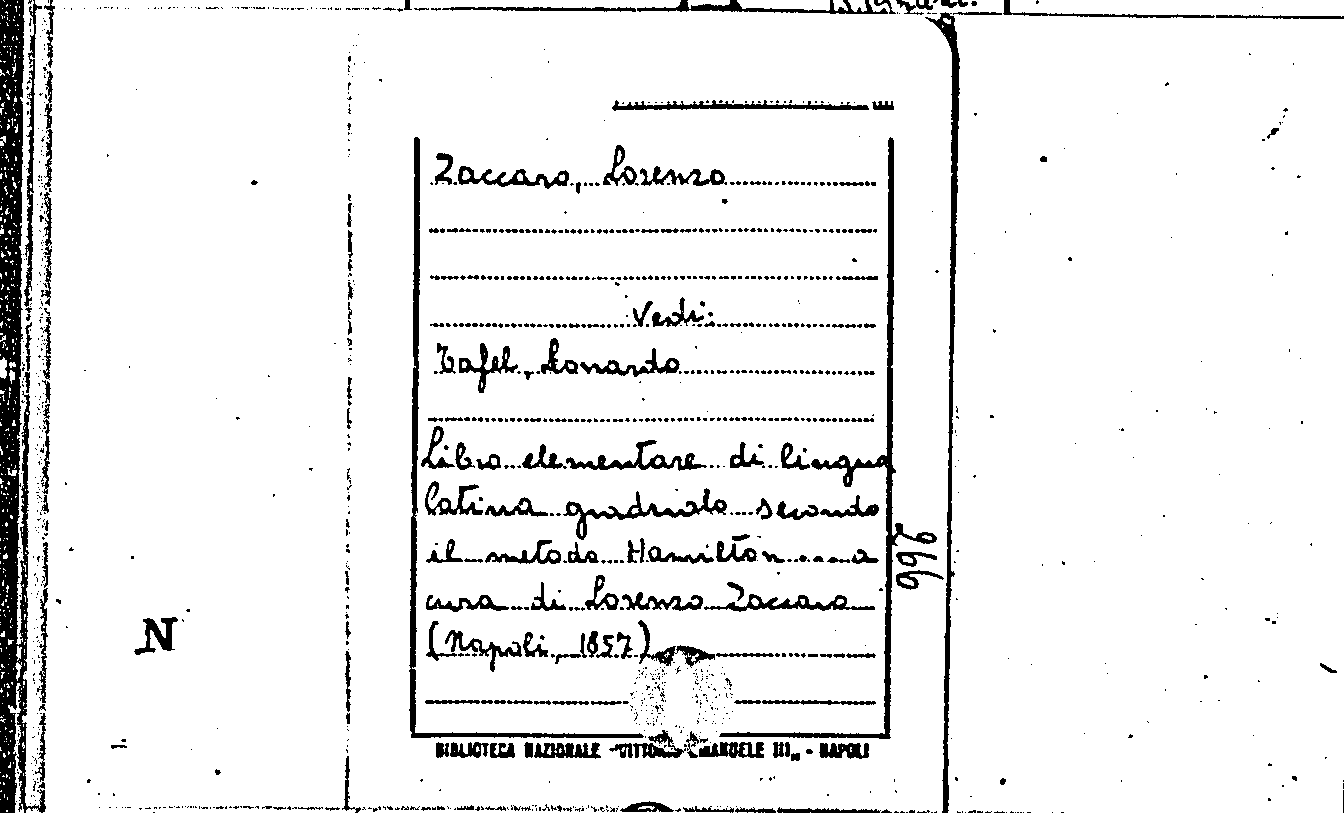 Zaccaro, Lorenzo
Vedi:
Tafel, Leonardo
Libro elementare di lingua
latina graduato secondo
il metodo Hamilton .... a
cura di Lorenzo Zaccaro
(Napoli, 1857)
BIBLIOTECA NAZIONALE "VITTORIO EMANUELE III„ - NAPOLI
N